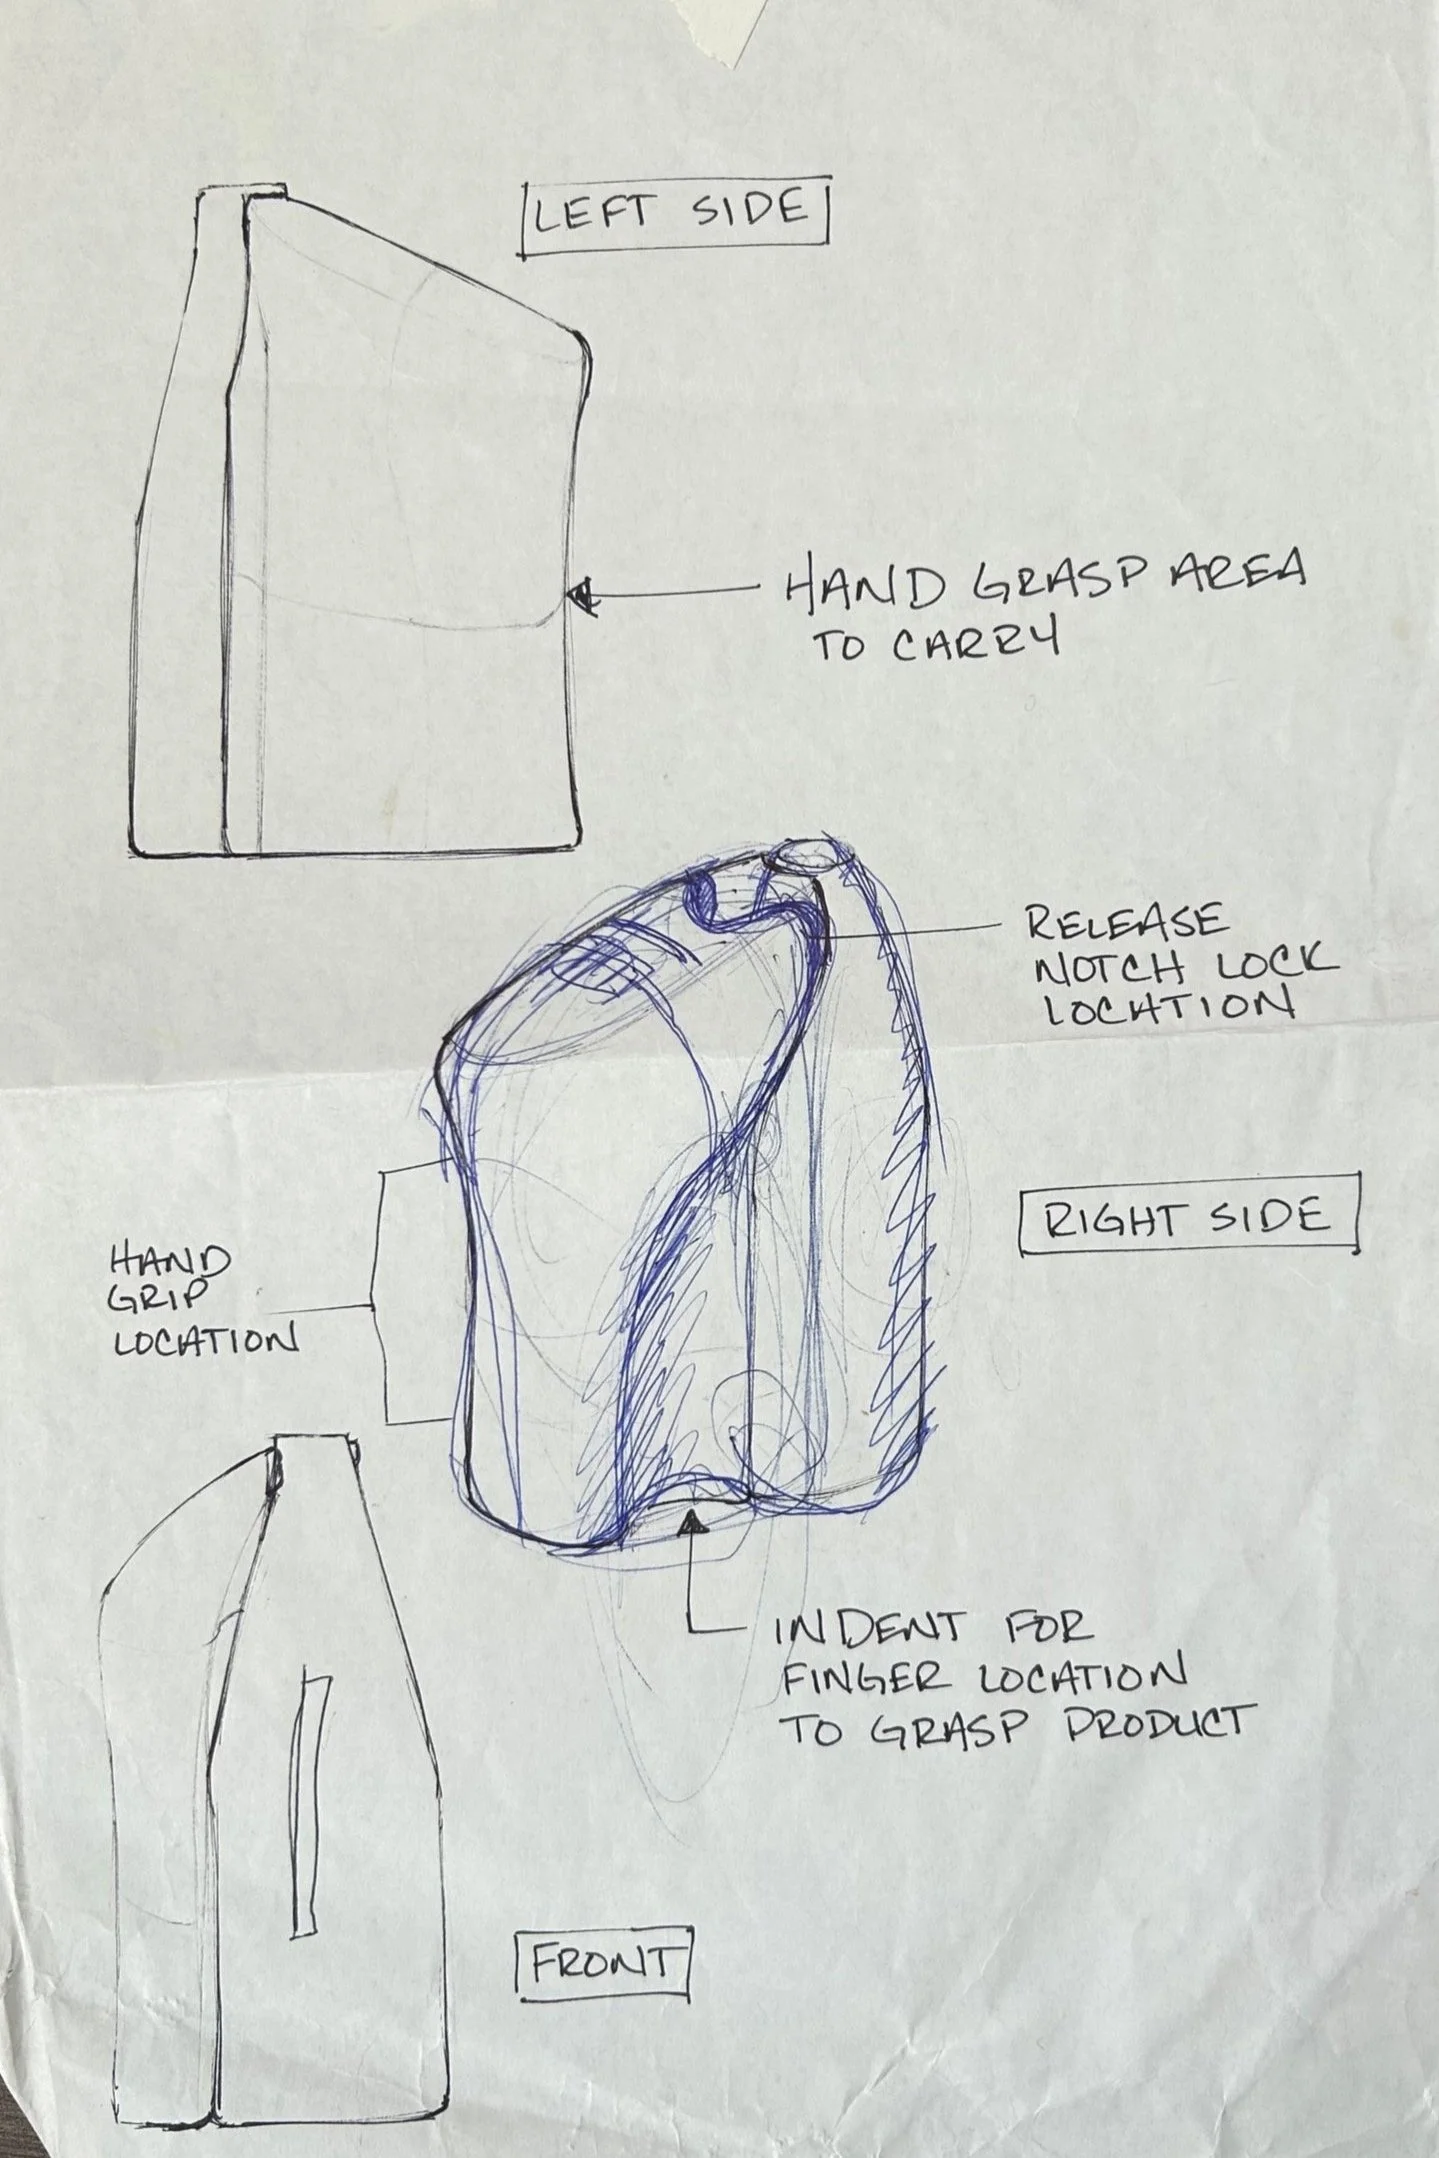 LEFT SIDE
HAND GRASP AREA
TO CARRY
RELEASE
NOTCH LOCK
LOCATION
RIGHT SIDE
HAND
GRIP
LOCATION
INDENT FOR
FINGER LOCATION
TO GRASP PRODUCT
FRONT